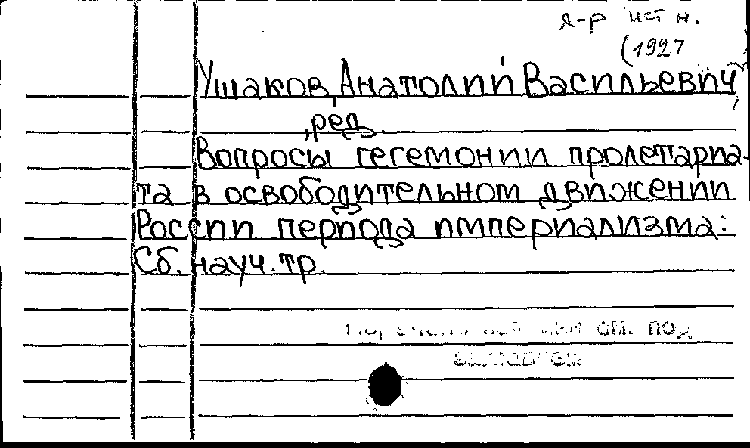 д-р ист н.
(1927
Ушаков, Анатолий Васильевич,
ред.
Вопросы гегемонии пролетариа-
та в освободительном движении
России периода империализма:
Сб. науч. тр.
см. под